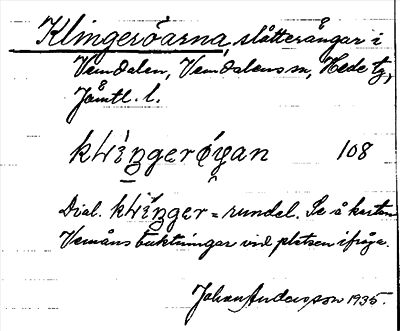 Klingeröarna, slåtterängar i
Vemdalen, Vemdalens sn, Hede tg,
Jämtl. l.
klingerøyan 108
Dial. klinger = rundel. Se å kartan
Vemåns buktningar vid platsen ifråga.
Johan Andersson 1935.